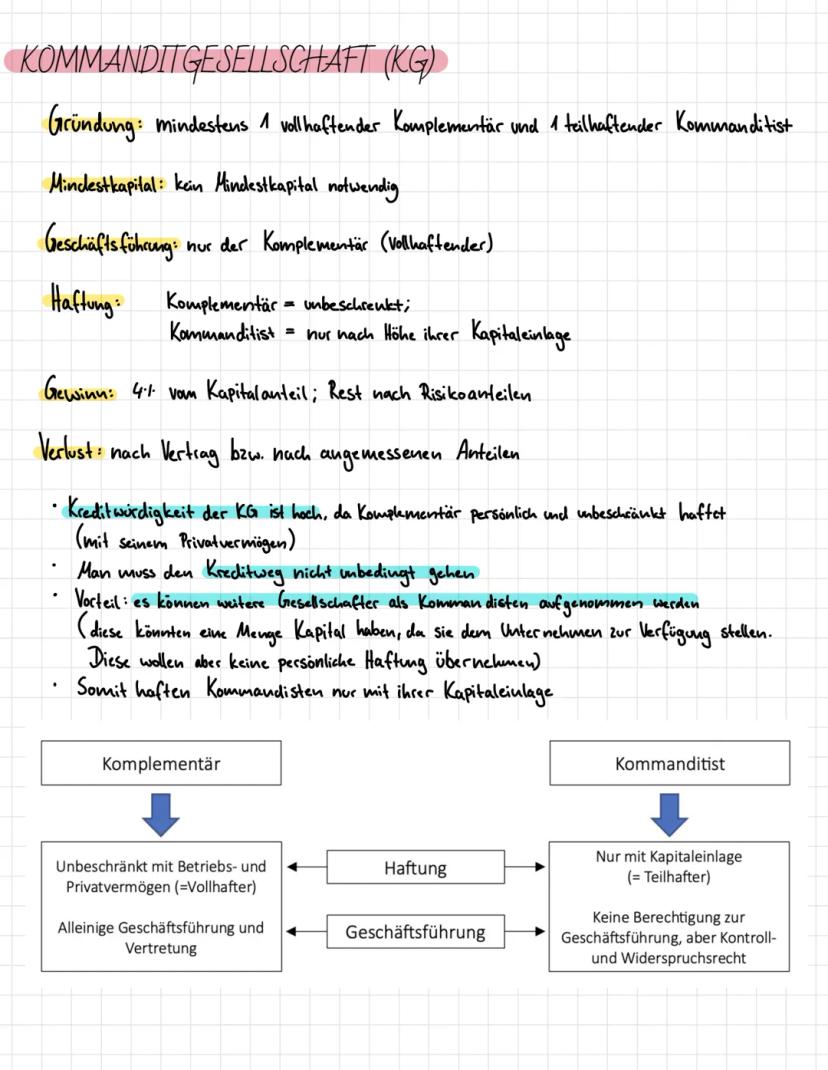 KOMMANDITGESELLSCHAFT (KG)
Gründung: mindestens 1 vollhaftender Komplementär und 1 teilhaftender Kommanditist
Mindestkapital: kein Mindestkapital notwendig
Geschäftsführung: nur der Komplementär (Vollhaftender)
Haftung: Komplementär = unbeschrenkt;
Kommanditist = nur nach Höhe ihrer Kapitaleinlage
Gewinn: 4% vom Kapitalanteil; Rest nach Risikoanteilen
Verlust: nach Vertrag bzw. nach angemessenen Anteilen
· Kreditwürdigkeit der KG ist hoch, da Komplementär persönlich und unbeschränkt haftet
(mit seinem Privatvermögen)
· Man muss den Kreditweg nicht unbedingt gehen
· Vorteil: es können weitere Gesellschafter als Kommandisten aufgenommen werden
(diese könnten eine Menge Kapital haben, da sie dem Unternehmen zur Verfügung stellen.
Diese wollen aber keine persönliche Haftung übernehmen)
· Somit haften Kommandisten nur mit ihrer Kapitaleinlage
Komplementär
Kommanditist
Unbeschränkt mit Betriebs- und
Privatvermögen (=Vollhafter)
Alleinige Geschäftsführung und
Vertretung
Haftung
Geschäftsführung
Nur mit Kapitaleinlage
(= Teilhafter)
Keine Berechtigung zur
Geschäftsführung, aber Kontroll-
und Widerspruchsrecht